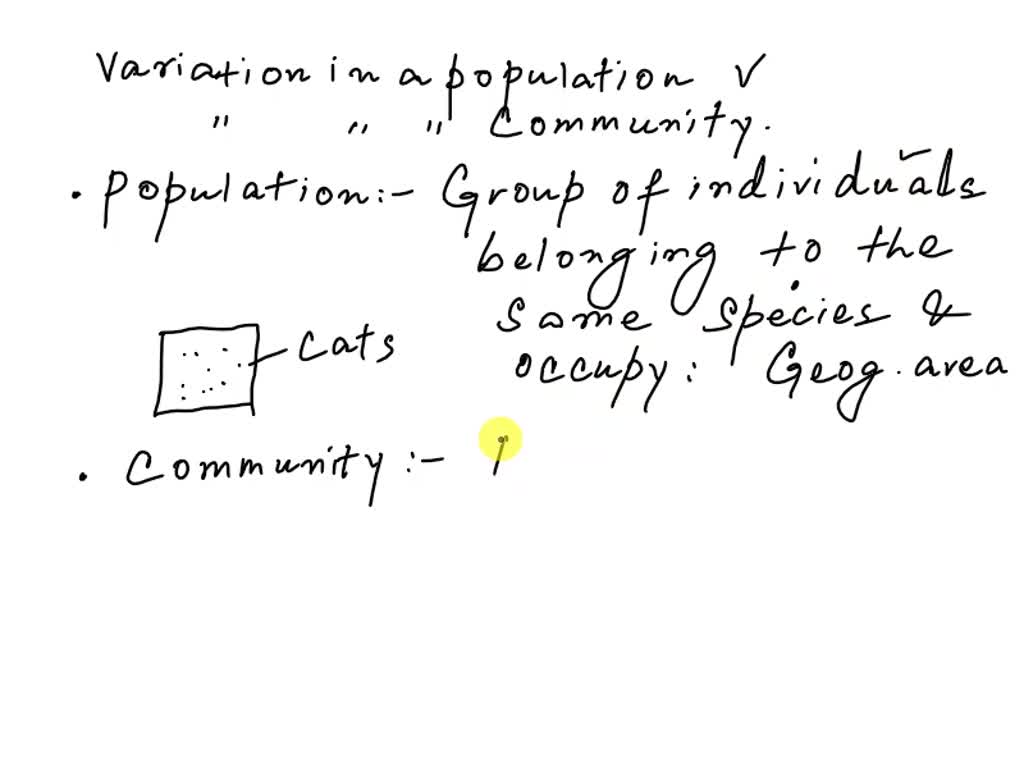 Variation in a population ✓
" " " Community.
• Population:- Group of individuals
belonging to the
same species &
occupy: Geog. area
cats
• Community :-